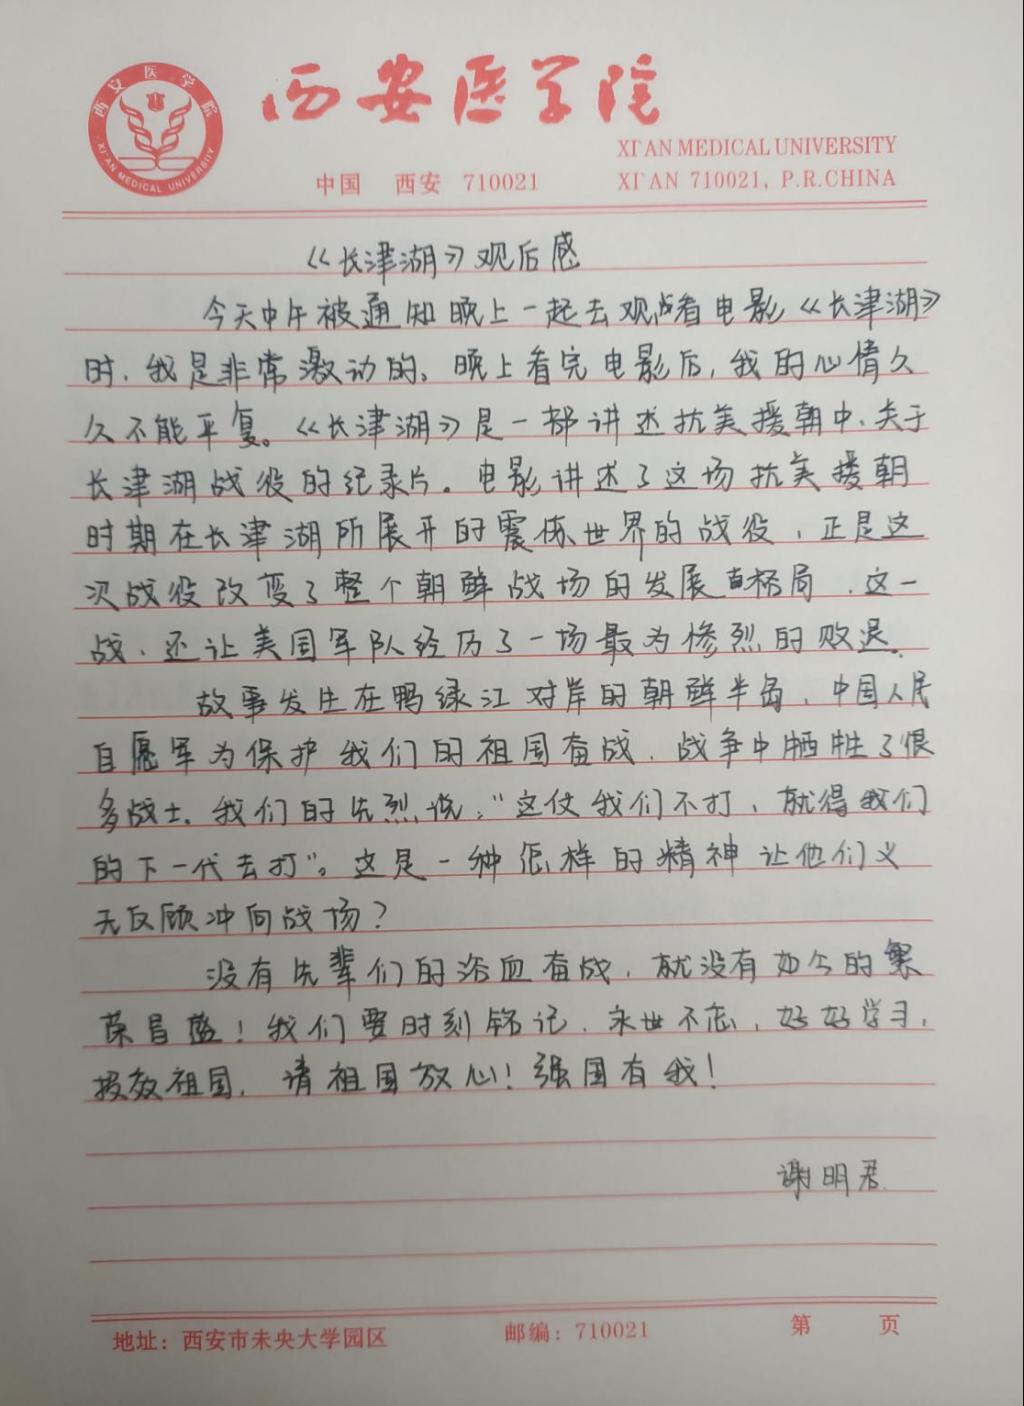 西安医学院
XI'AN MEDICAL UNIVERSITY
西安医学院
XI'AN MEDICAL UNIVERSITY
中国 西安 710021
XI'AN 710021, P.R.CHINA
《长津湖》观后感
今天中午被通知晚上一起去观看电影《长津湖》
时,我是非常激动的。晚上看完电影后,我的心情久
久不能平复。《长津湖》是一部讲述抗美援朝中、关于
长津湖战役的纪录片。电影讲述了这场抗美援朝
时期在长津湖所展开的震撼世界的战役,正是这
次战役改变了整个朝鲜战场的发展格局,这一
战、还让美国军队经历了一场最为惨烈的败退。
故事发生在鸭绿江对岸的朝鲜半岛,中国人民
自愿军为保护我们的祖国奋战,战争中牺牲了很
多战士。我们的先烈说:“这仗我们不打,就得我们
的下一代去打”。这是一种怎样的精神让他们义
无反顾冲向战场?
没有先辈们的浴血奋战,就没有如今的繁
荣昌盛!我们要时刻铭记,永世不忘,好好学习,
报效祖国,请祖国放心!强国有我!
谢明君
地址:西安市未央大学园区 邮编:710021 第 页